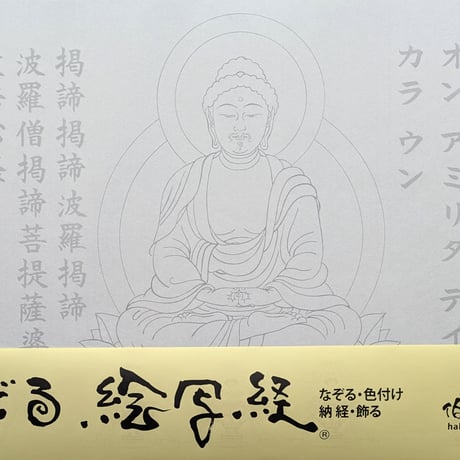 オン アミリタ テイ
カラ ウン
掲諦掲諦波羅掲諦
波羅僧掲諦菩提薩婆
ぞる 絵写経®
なぞる・色付け
納経・飾る